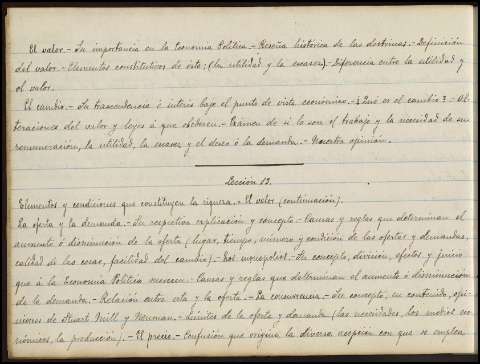 El valor.- Su importancia en la Economía Política.- Reseña histórica de las doctrinas.- Definición
del valor.- Elementos constitutivos de éste; (la utilidad y la escasez).- Diferencia entre la utilidad y
el valor.
El cambio.- Su trascendencia é interés bajo el punto de vista económico.- ¿Qué es el cambio?- Al-
teraciones del valor y leyes á que obedecen.- Exámen de si lo son el trabajo y la necesidad de su
remuneración, la utilidad, la escasez y el deseo ó la demanda.- Nuestra opinión.
Lección 13.
Elementos y condiciones que constituyen la riqueza.- El valor (continuación).
La oferta y la demanda.- Su respectiva explicación y concepto.- Causas y reglas que determinan el
aumento ó disminución de la oferta (lugar, tiempo, número y condición de las ofertas y demandas,
calidad de las cosas, facilidad del cambio).- Los monopolios.- Su concepto, división, efectos y juicio
que á la Economía Política merecen.- Causas y reglas que determinan el aumento ó disminución
de la demanda.- Relación entre ésta y la oferta.- La concurrencia.- Su concepto, su contenido, opi-
niones de Stuart Mill y Neuman.- Límites de la oferta y demanda (las necesidades, los medios eco-
nómicos, la producción).- El precio.- Confusión que origina la diversa acepción con que se emplea